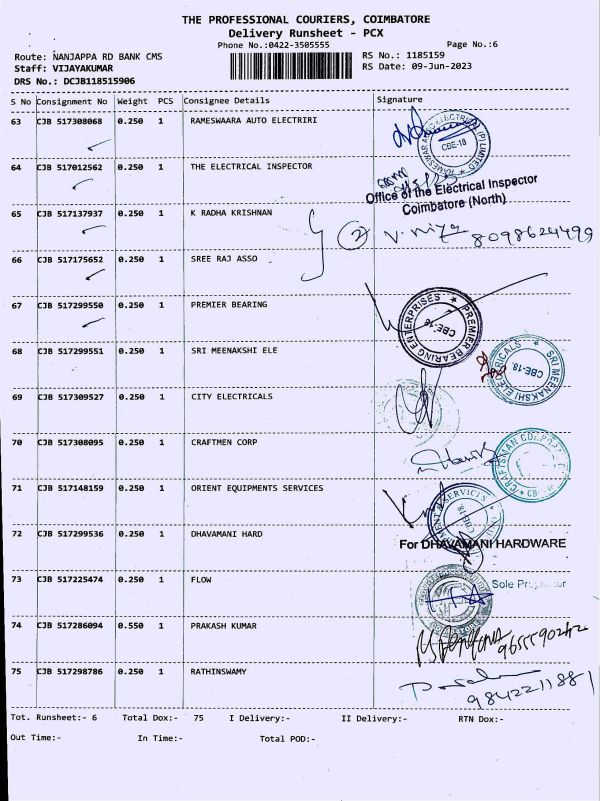 THE PROFESSIONAL COURIERS, COIMBATORE
Delivery Runsheet - PCX
Phone No.:0422-3505555 Page No.:6
Route: NANJAPPA RD BANK CMS RS No.: 1185159
Staff: VIJAYAKUMAR RS Date: 09-Jun-2023
DRS No.: DCJB118515906
S No Consignment No Weight PCS Consignee Details Signature
63 CJB 517308068 0.250 1 RAMESWAARA AUTO ELECTRIRI
CBE-18
64 CJB 517012562 0.250 1 THE ELECTRICAL INSPECTOR
Office of the Electrical Inspector
Coimbatore (North)
65 CJB 517137937 0.250 1 K RADHA KRISHNAN
2 8098624499
66 CJB 517175652 0.250 1 SREE RAJ ASSO
67 CJB 517299550 0.250 1 PREMIER BEARING
PREMIER BEARING ENTERPRISES CBE-18
68 CJB 517299551 0.250 1 SRI MEENAKSHI ELE
SRI MEENAKSHI ELECTRICALS CBE-18.
69 CJB 517309527 0.250 1 CITY ELECTRICALS
70 CJB 517308095 0.250 1 CRAFTMEN CORP
71 CJB 517148159 0.250 1 ORIENT EQUIPMENTS SERVICES
SERVICES CBE-18
72 CJB 517299536 0.250 1 DHAVAMANI HARD
For DHAVAMANI HARDWARE
73 CJB 517225474 0.250 1 FLOW
Sole Proprietor
74 CJB 517286094 0.550 1 PRAKASH KUMAR
9655590242
75 CJB 517298786 0.250 1 RATHINSWAMY
9842211881
Tot. Runsheet:- 6 Total Dox:- 75 I Delivery:- II Delivery:- RTN Dox:-
Out Time:- In Time:- Total POD:-